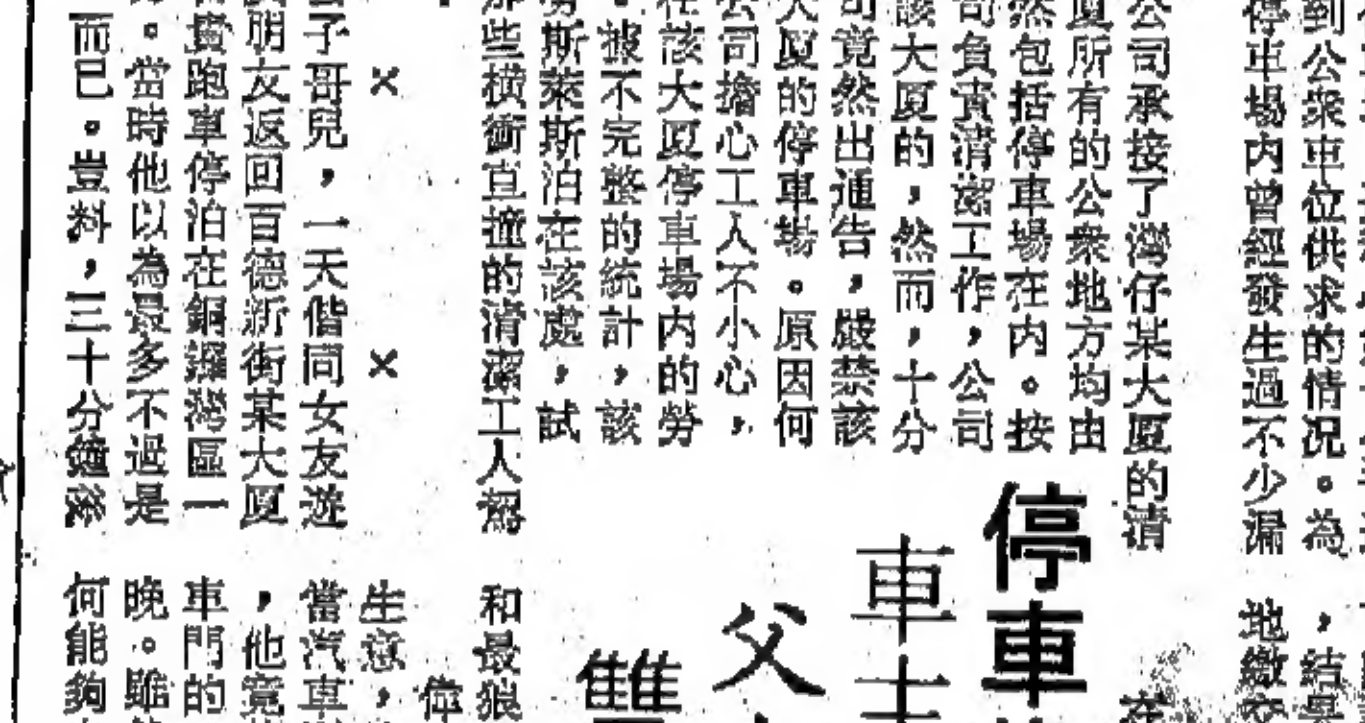 到公衆車位供求的情況。為
停車場内曾經發生過不少漏
公司承接了灣仔某大厦的清
厦所有的公衆地方均由
然包括停車場在内。按
司負責清潔工作，公司
該大厦的，然而，十分
司竟然出通告，嚴禁該
大厦的停車場。原因何
公司擔心工人不小心，
在該大厦停車場内的勞
。據不完整的統計，該
勞斯萊斯泊在該處，試
那些横衝直撞的清潔工人
× ×
子哥兒，一天偕同女友遊
朋友返回百德新街某大厦
賣跑車停泊在銅鑼灣區一
。當時他以為最多不過是
而已。豈料，三十分鐘
停車
車
父
雙
，結
地繳交
和最狼
生意，
當汽車
，他竟
車門的
晚。雖
何能夠